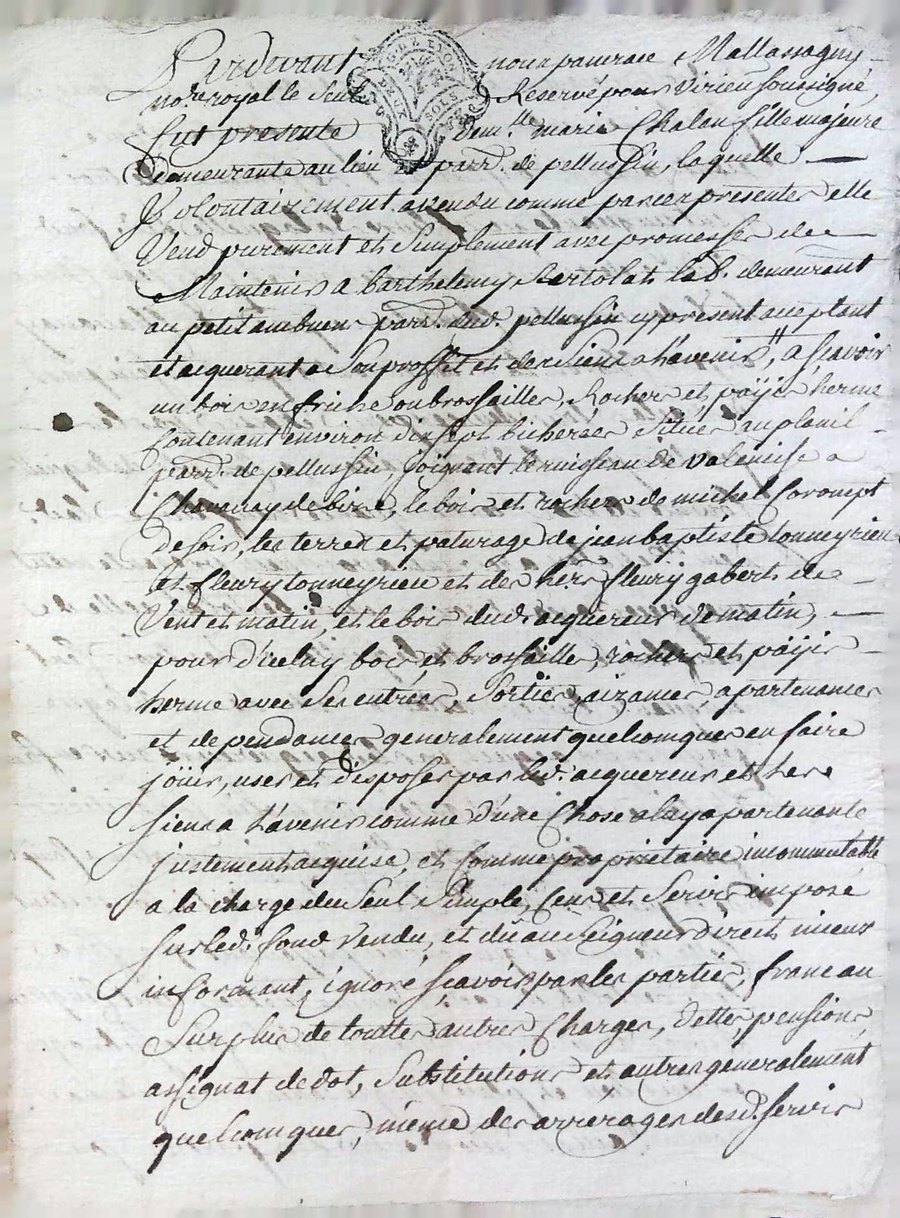 Pardevant nous pancrace Mallassagny
no.re royal le Seul Reservé pour virieu soussigné,
fut presente dem.lle marie Chalan fille majeure
demeurante au lieu parr. de pellussin, laquelle
Volontairement a vendu comme par ces presentes elle
Vend purement et Simplement avec promesses de
Maintenir a barthelemy Bertolat lab. demeurant
au petit embuen parr. dud. pellussin cy present acceptant
et acquerant a Son proffit et des Siens a l'avenir, a sçavoir
un bois en friche ou brossailles, Rocher et païs herme
Contenant environ dix sept bicherées Situé au planil
parr. de pellussin, joignant le ruisseau de valencise a
de bize, le bois et rocher de michel Corompt
de soir, les terres et paturage de jean baptiste tonneyrieu
et fleury tonneyrieu et des hers. fleury gabert de
Vent et matin, et le bois dud. acquereur de matin,
pour d'iceluy bois et brossailles, rocher et païs
herme avec Ses entrées, Sorties, aizances, apartenances
et dependances generalement quelconques en faire
joüir, user et disposer par led. acquereur et les
siens a l'avenir comme d'une Chose a luy apartenante
justement acquise, et Comme proprietaire incommutable
a la charge du Seul Simple, Cens et Servis imposé
sur led. fond vendu, et dû au Seigneur direct mieux
informant, ignoré sçavoir par les parties, franc au
Surplus de toutte autres Charges, dettes, pensions
assignat de dot, Substitutions et autres generalement
quelconques, même des arrerages desd. servis